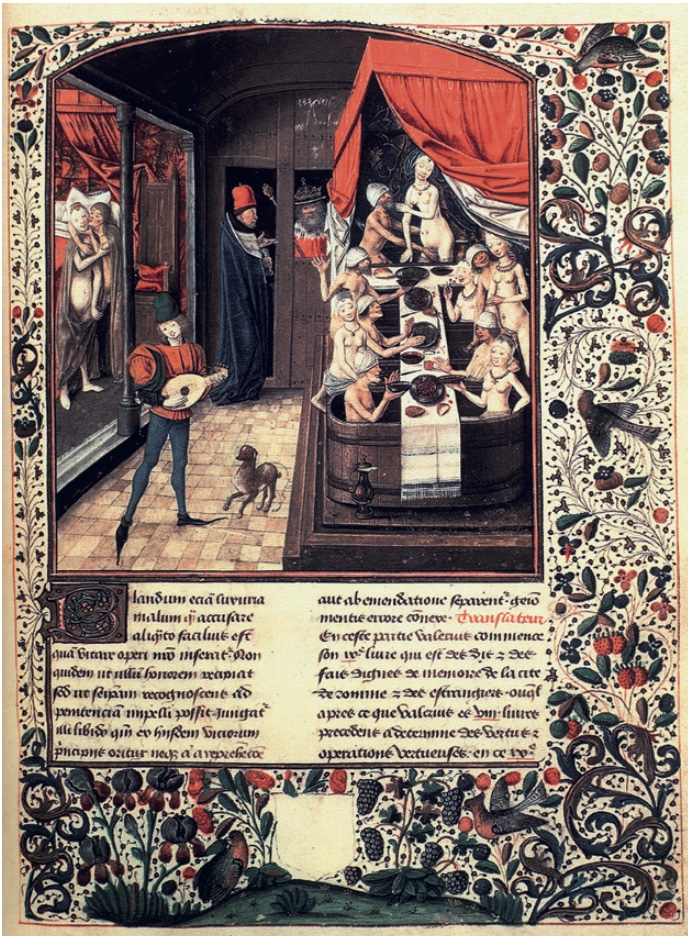 Blandum eciā luxuria
malum q̄ accusare
aliq̄to facilius est
quā vitare operi nr̄o inserat͛. Non
quidem ut ullū honorem recipiat
sed ut seipam recognoscens ad
penitenciā impelli possit. Jungat͛
illi libido qm̄ ex hysdem viciorum
principiis oritur neqꝫ a a reprehēcōe
aut ab emendatione separent͛. gemō
mentis errore cōnexe. Translateur.
En ceste partie Valerius commence
son ixe. livre qui est des dis ⁊ des
fais dignes de memoire de la cite
de romme ⁊ des estrangiers. ouql̄
apres ce que Valerius es viii. livres
precedens a determine des vertus ⁊
operations vertueuses. en ce ixe.